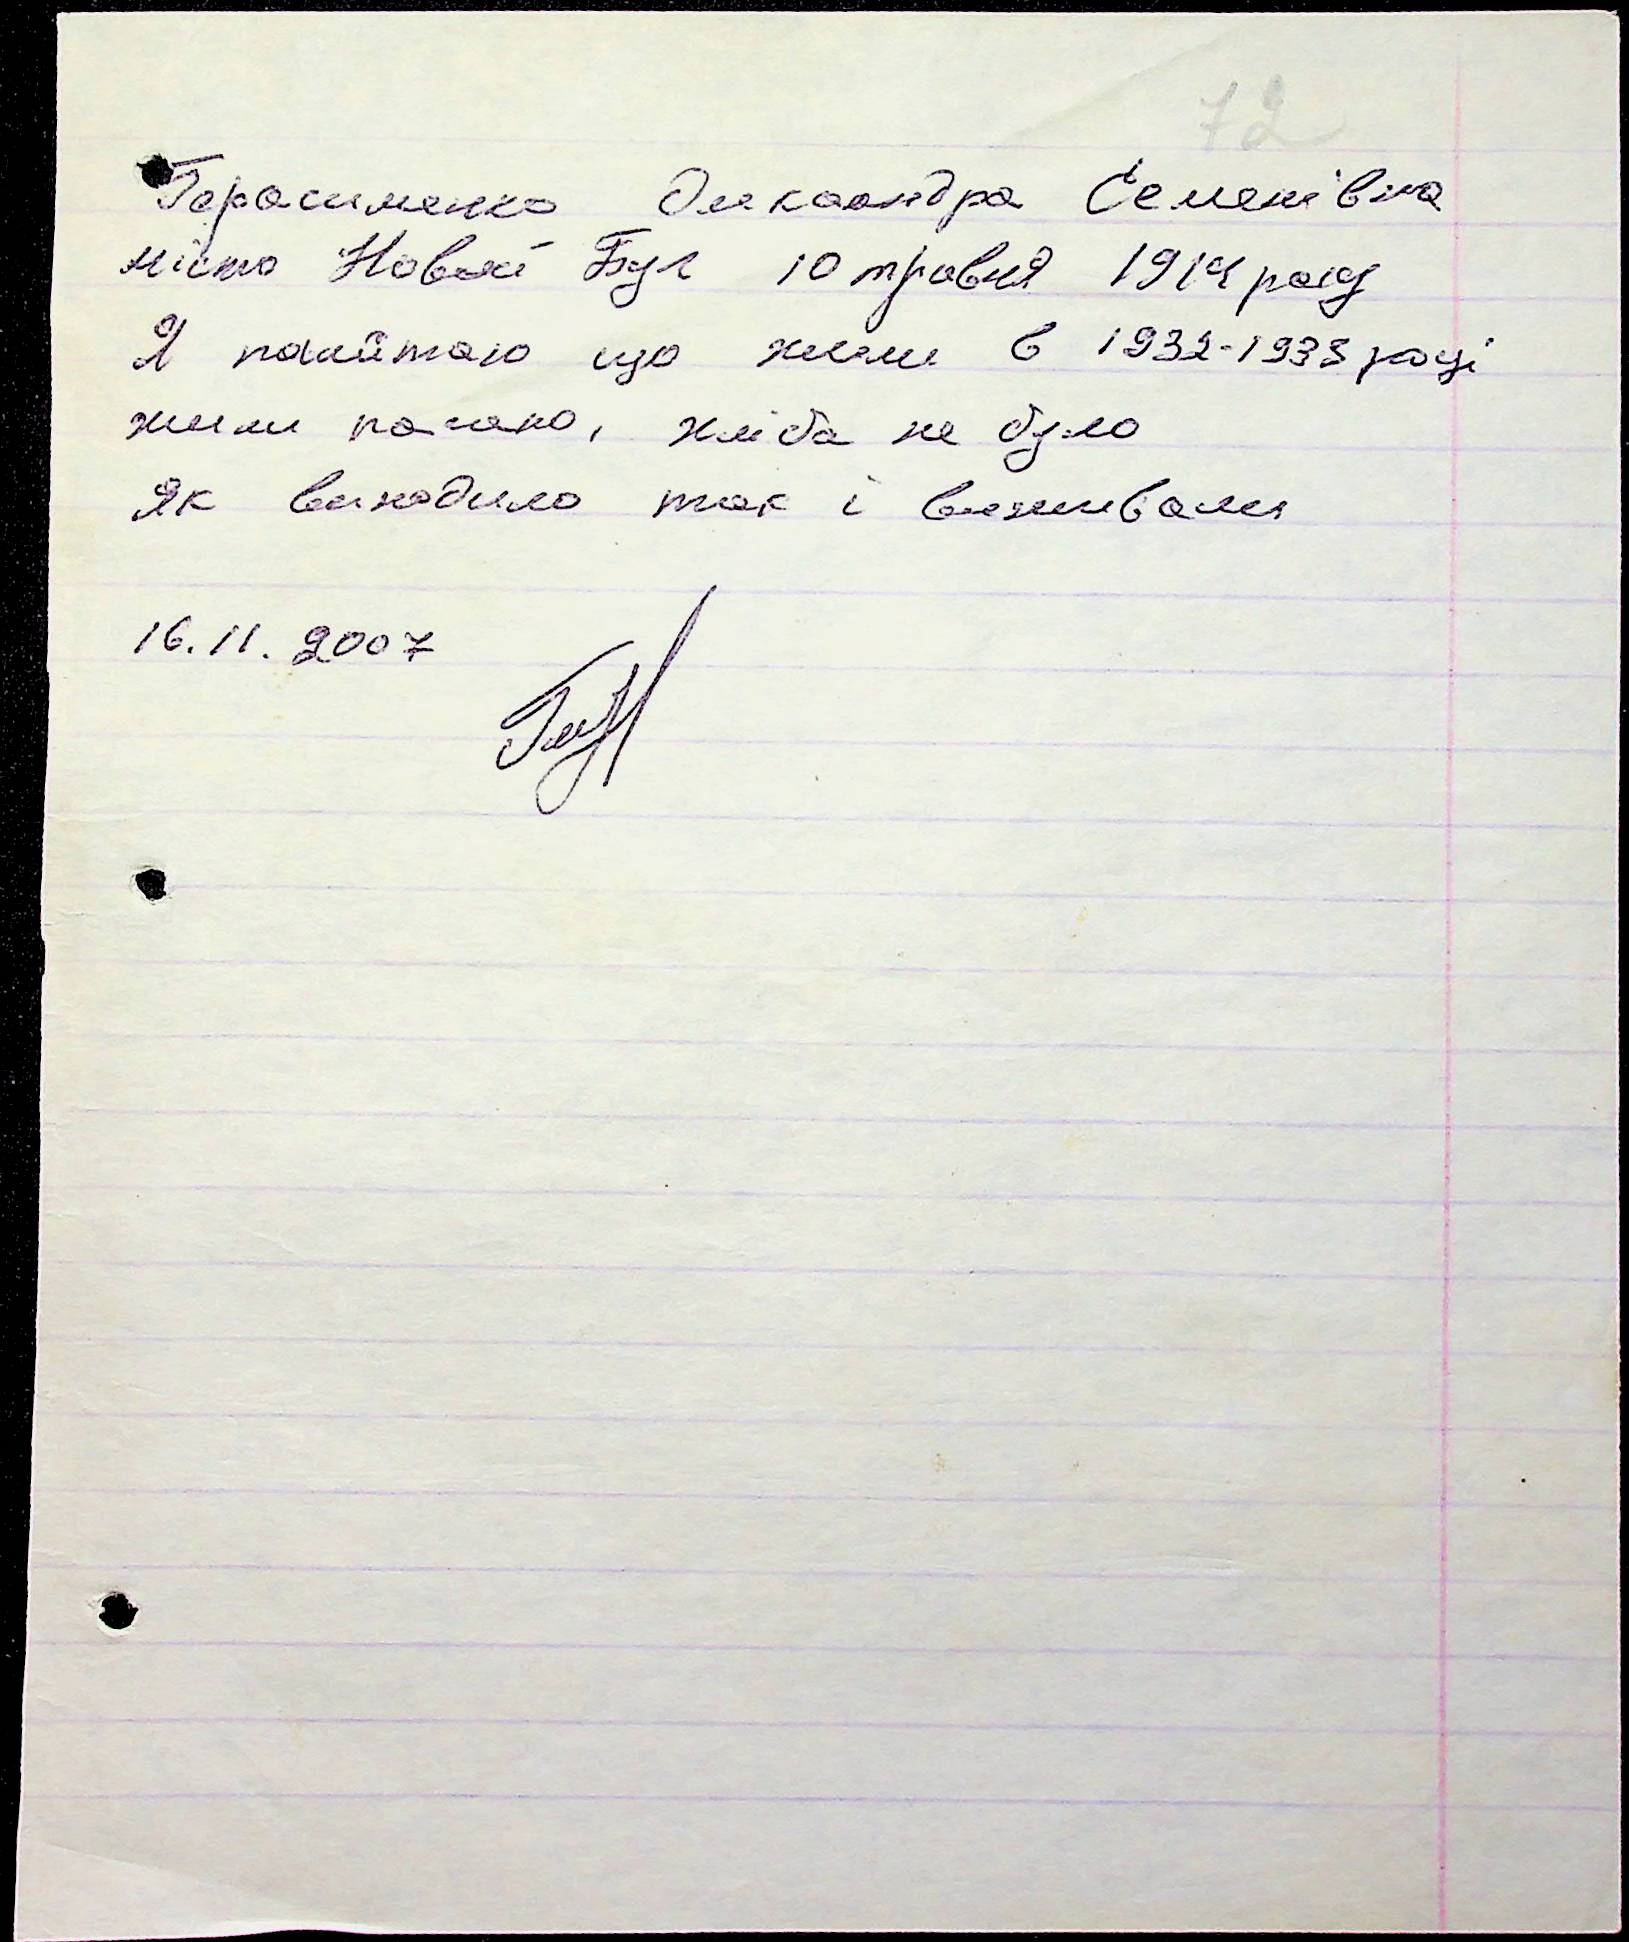 72
Герасименко Олександра Семенівна
місто Новий Буг 10 травня 1914 року
Я памйтаю що жили в 1932-1933 році
жили погано, хліба не було
Як виходило так і виживали
16.11.2007